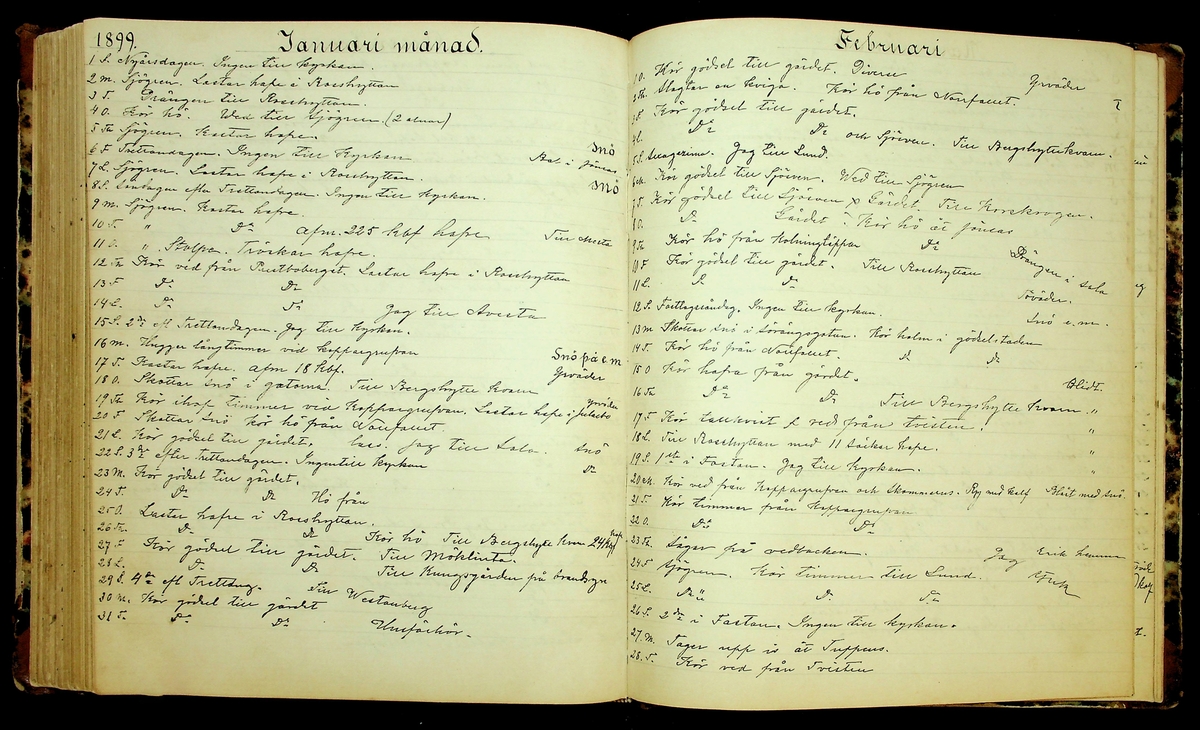 1899. Januari månad.
1 S. Nyårsdagen. Ingen till kyrkan.
2 M. Sjögren. Lastar hafre i Rosshyttan
3 T. Drängen till Rosshyttan.
4 O. Kör hö. Ved till Sjögren. (2 alnar)
5 Th Sjögren. Kastar hafre. Snö
6 F Trettondagen. Ingen till kyrkan i Jönsas
7 L. Sjögren. Lastar hafre i Rosshyttan. Snö
8 S. Söndagen efter Trettondagen. Ingen till kyrkan.
9 M. Sjögren. Kastar hafre.
10 T. " Do afm. 225 kbf hafre Till
11 O. " Stolpen. Tröskar hafre.
12 Th Kör ved från Lastar hafre i Rosshyttan
13 F Do Do
14 L. Do Do Jag till Avesta
15 S. 2dre eft Trettondagen. Jag till kyrkan.
16 M. Hugger långtimmer vid koppargrufvan Snö på e m
17 T. Kastar hafre. afm 18 kbf. Yrväder
18 O. Skottar snö i gatorna. Till Bergshytte kvarn yrväder
19 Th Kör ihop timmer vid Koppargrufvan. Lastar hafre i
20 F Skottar snö kör hö från Norfallet.
21 L. Kör gödsel till gärdet. Jag till Sala. Snö
22 S. 3dje efter Trettondagen. Ingen till kyrkan Do
23 M. Kör gödsel till gärdet.
24 T. Do Do Hö från
25 O. Lastar hafre i Rosshyttan.
26 Th. Do Do Kör hö Till Bergshytte kvarn 24 kbf hafre
27 F Kör gödsel till gärdet. Till Möklinta.
28 L. Do Do Till Kungsgården på brandsyn
29 S. 4de eft Trettondg. Till Westanberg
30 M. Kör gödsel till gärdet
31 T. Do Do Husförhör.
Februari
1 O. Kör gödsel till gärdet. Diverse Yrväder
2 Th. Slagtar en kviga. Kör hö från Norfallet.
3 F Kör gödsel till gärdet.
4 L. Do Do och Sjörven. Till Bergshyttekvarn.
5 S. Jag till Lund.
6 M. Kör gödsel till Sjörven. Ved till Sjögren
7 T. Kör gödsel till Sjörven & Gärdet. Till Korskrogen.
8 O. Do Gärdet. Kör hö åt Jönsas
9 Th Kör hö från Do
10 F Kör gödsel till gärdet. Till Rosshyttan Drängen i Sala
11 L. Do Do Töväder.
12 S. Fastlagssöndag. Ingen till kyrkan. Snö e.m.
13 M Skottar snö i Kör halm i gödselstaden
14 T. Kör hö från Norfallet. Do Do
15 O Kör hafra från gärdet.
16 Th Do Do Till Bergshytte kvarn Blidt.
17 F Kör & ved från tvisten. "
18 L. Till Rosshyttan med 11 säckar hafre. "
19 S. 1sta i Fastan. Jag till kyrkan. "
20 M. Kör ved från Koppargrufvan och Blåst med snö
21 T. Kör timmer från koppargrufvan
22 O. Do Do
23 Th. Sågar på vedbacken. Jag Erik
24 F Sjögren. Kör timmer till Lund.
25 L. Do " Do Do
26 S. 2dra i Fastan. Ingen till kyrkan.
27. M. Tager upp is åt Tuppens.
28. T. Kör ved från Tvisten